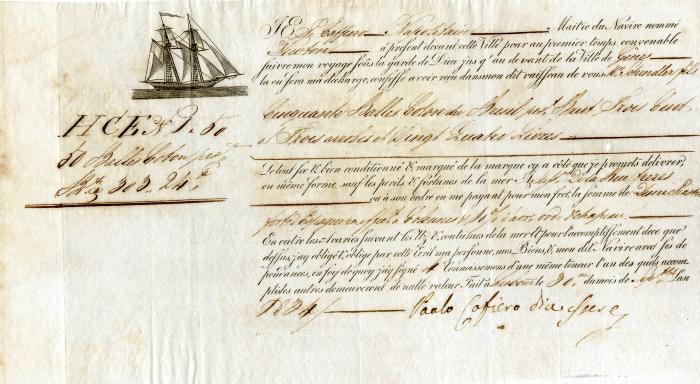 JE P. Caffiero Napolitain Maitre du Navire nommé
à présent devant cette Ville pour au premier temps convenable
suivre mon voyage sous la garde de Dieu jus qu'au devant de la Ville de Genes
là ou sera ma décharge, confesse avoir reçu dans mon dit vaisseau de vous
Cinquante Balles Coton du Bresil pest. Brut Trois Cent
et Trois arrobes et Vingt Quatre Livres
HCE N 1.50
50 Balles Coton pest
303.24
Le tout sec & bien conditionné & marqué de la marque cy a côté que je promets délivrer,
en même forme, sauf les perils & fortunes de la mer. A frères
ou à son ordre en me payant pour mon fret, la somme de
d'avar. ord. & chapeau
En outre les avaries suivant les Uz & coutumes de la mer & pour l'accomplissement de ce que
dessus, j'ay obligé & oblige par cette Ecrit ma personne, mes Biens, & mon dit Navire avec ses de
pendances, en foy de quoy j'ay signé 4 Connoissemens d'une même teneur l'un des quels accom
plis les autres demeureront de nulle valeur. Fait à le 30 du mois de l'an
1834
Paolo Cafiero